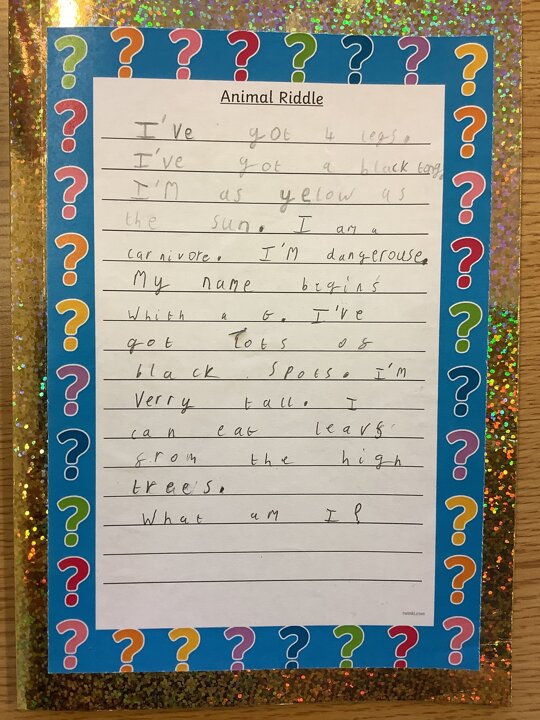 Animal Riddle
I've got 4 legs.
I've got a black tong
I'M as yelow as
the sun. I am a
carnivore. I'M dangerouse.
My name begins
Whith a G. I've
got lots of
black spots. I'M
Verry tall. I
can eat leavs
from the high
trees.
What am I?
twinkl.com